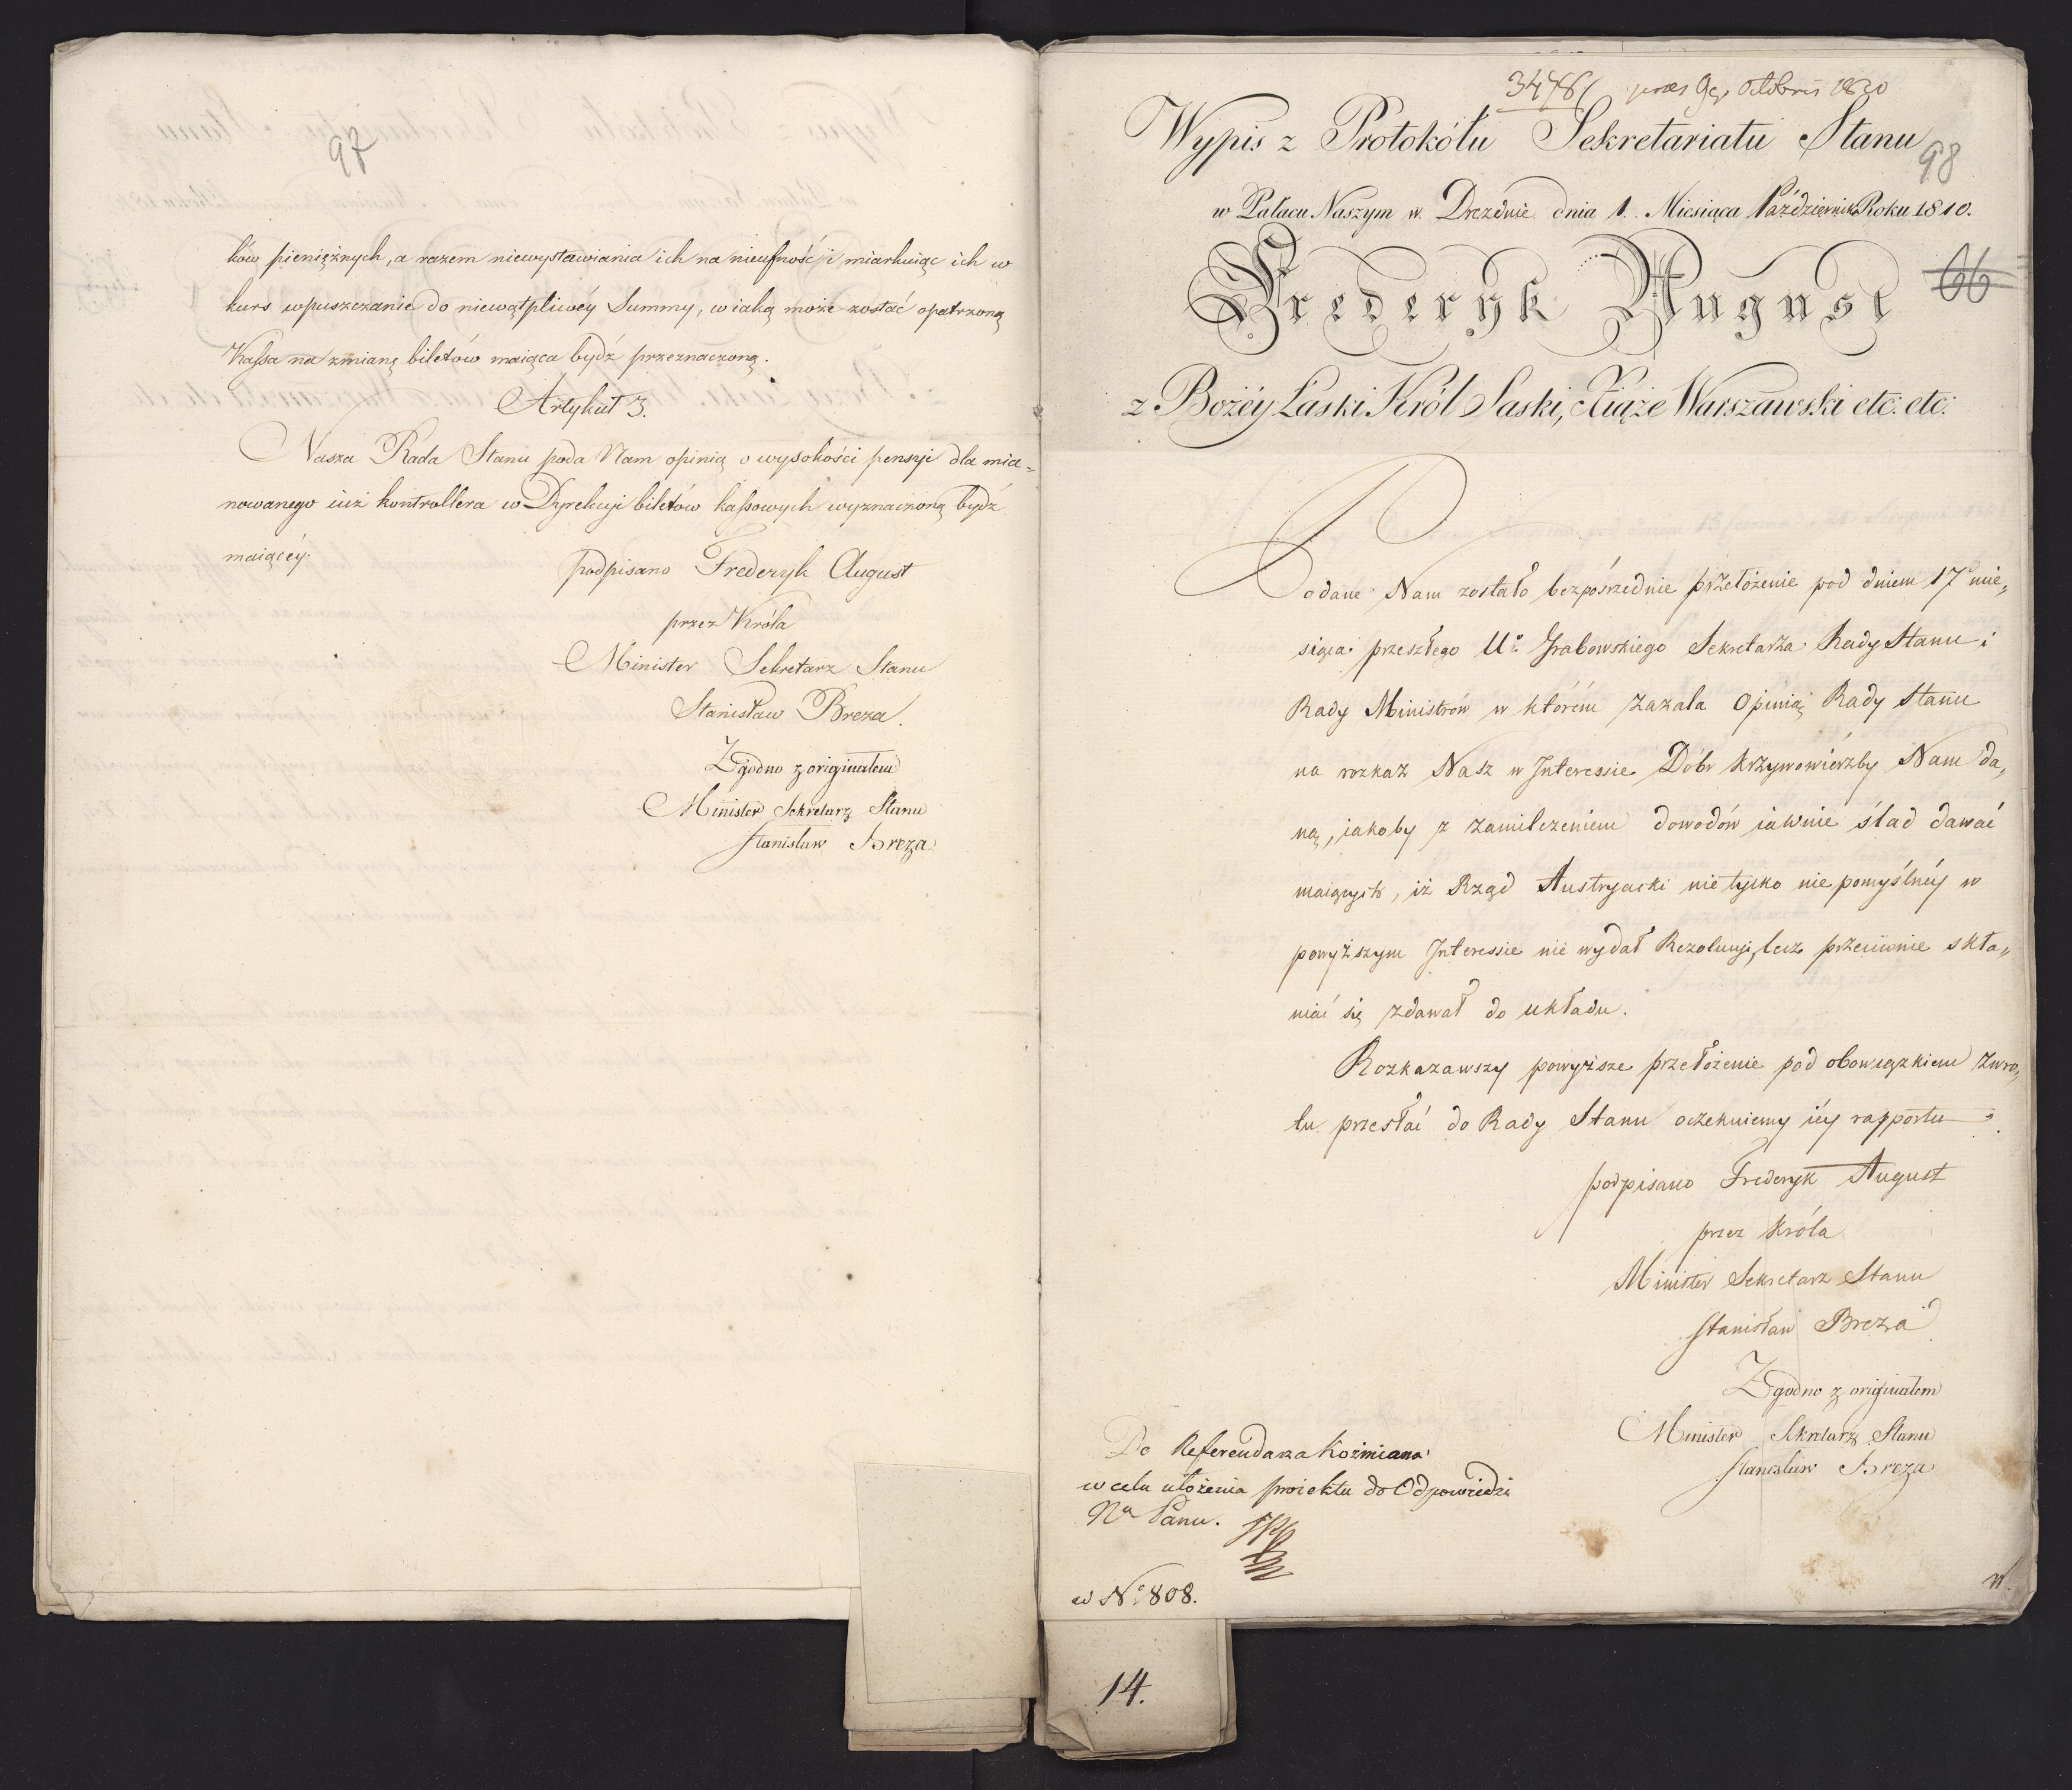 97
ków pieniężnych, a razem niewystawiania ich na nieufność i miarkuiąc ich w
kurs wpuszczanie do niewątpliwéy Summy, w iaką może zostać opatrzoną
Kassa na zmianę biletów maiąca bydź przeznaczoną.
Artykuł 3.
Nasza Rada Stanu poda Nam opinią o wysokości pensyi dla mia=
nowanego iuż kontrollera w Dyrekcyi biletów kassowych wyznaczoną bydź
maiącéy.
podpisano Frederyk August
przez Króla
Minister Sekretarz Stanu
Stanisław Breza.
Zgodno z originałem
Minister Sekretarz Stanu
Stanisław Breza
98
Wypis z Protokółu Sekretariatu Stanu
w Pałacu Naszym w Dreznie dnia 1. Miesiąca Październik Roku 1810.
Frederyk August
66
z Bożéy Łaski Król Saski, Xiąże Warszawski etc: etc:
Podane Nam zostało bezpośrzednie przełożenie pod dniem 17º mie„
siąca przeszłego Uº Grabowskiego Sekretarza Rady Stanu i
Rady Ministrów w którém zażala Opinią Rady Stanu
na rozkaz Nasz w Interessie Dóbr Krzywowierzby Nam da„
ną, iakoby z zamilczeniem dowodów iawnie ślad dawać
maiących, iż Rząd Austryacki nie tylko niepomyślnéy w
powyższym Interessie nie wydał Rezolucyi, lecz przeciwnie skła„
niać się zdawał do układu.
Rozkazawszy powyższe przełożenie pod obowiązkiem zwro„
tu przesłać do Rady Stanu oczekuiemy iéy rapportu.
podpisano Frederyk August
przez Króla
Minister Sekretarz Stanu
Stanisław Breza
Zgodno z originałem
Minister Sekretarz Stanu
Stanisław Breza
Do Referendarza Koźmiana
w celu ułożenia proiektu do Odpowiedzi
Nu Panu.
w Nº 808.
14.